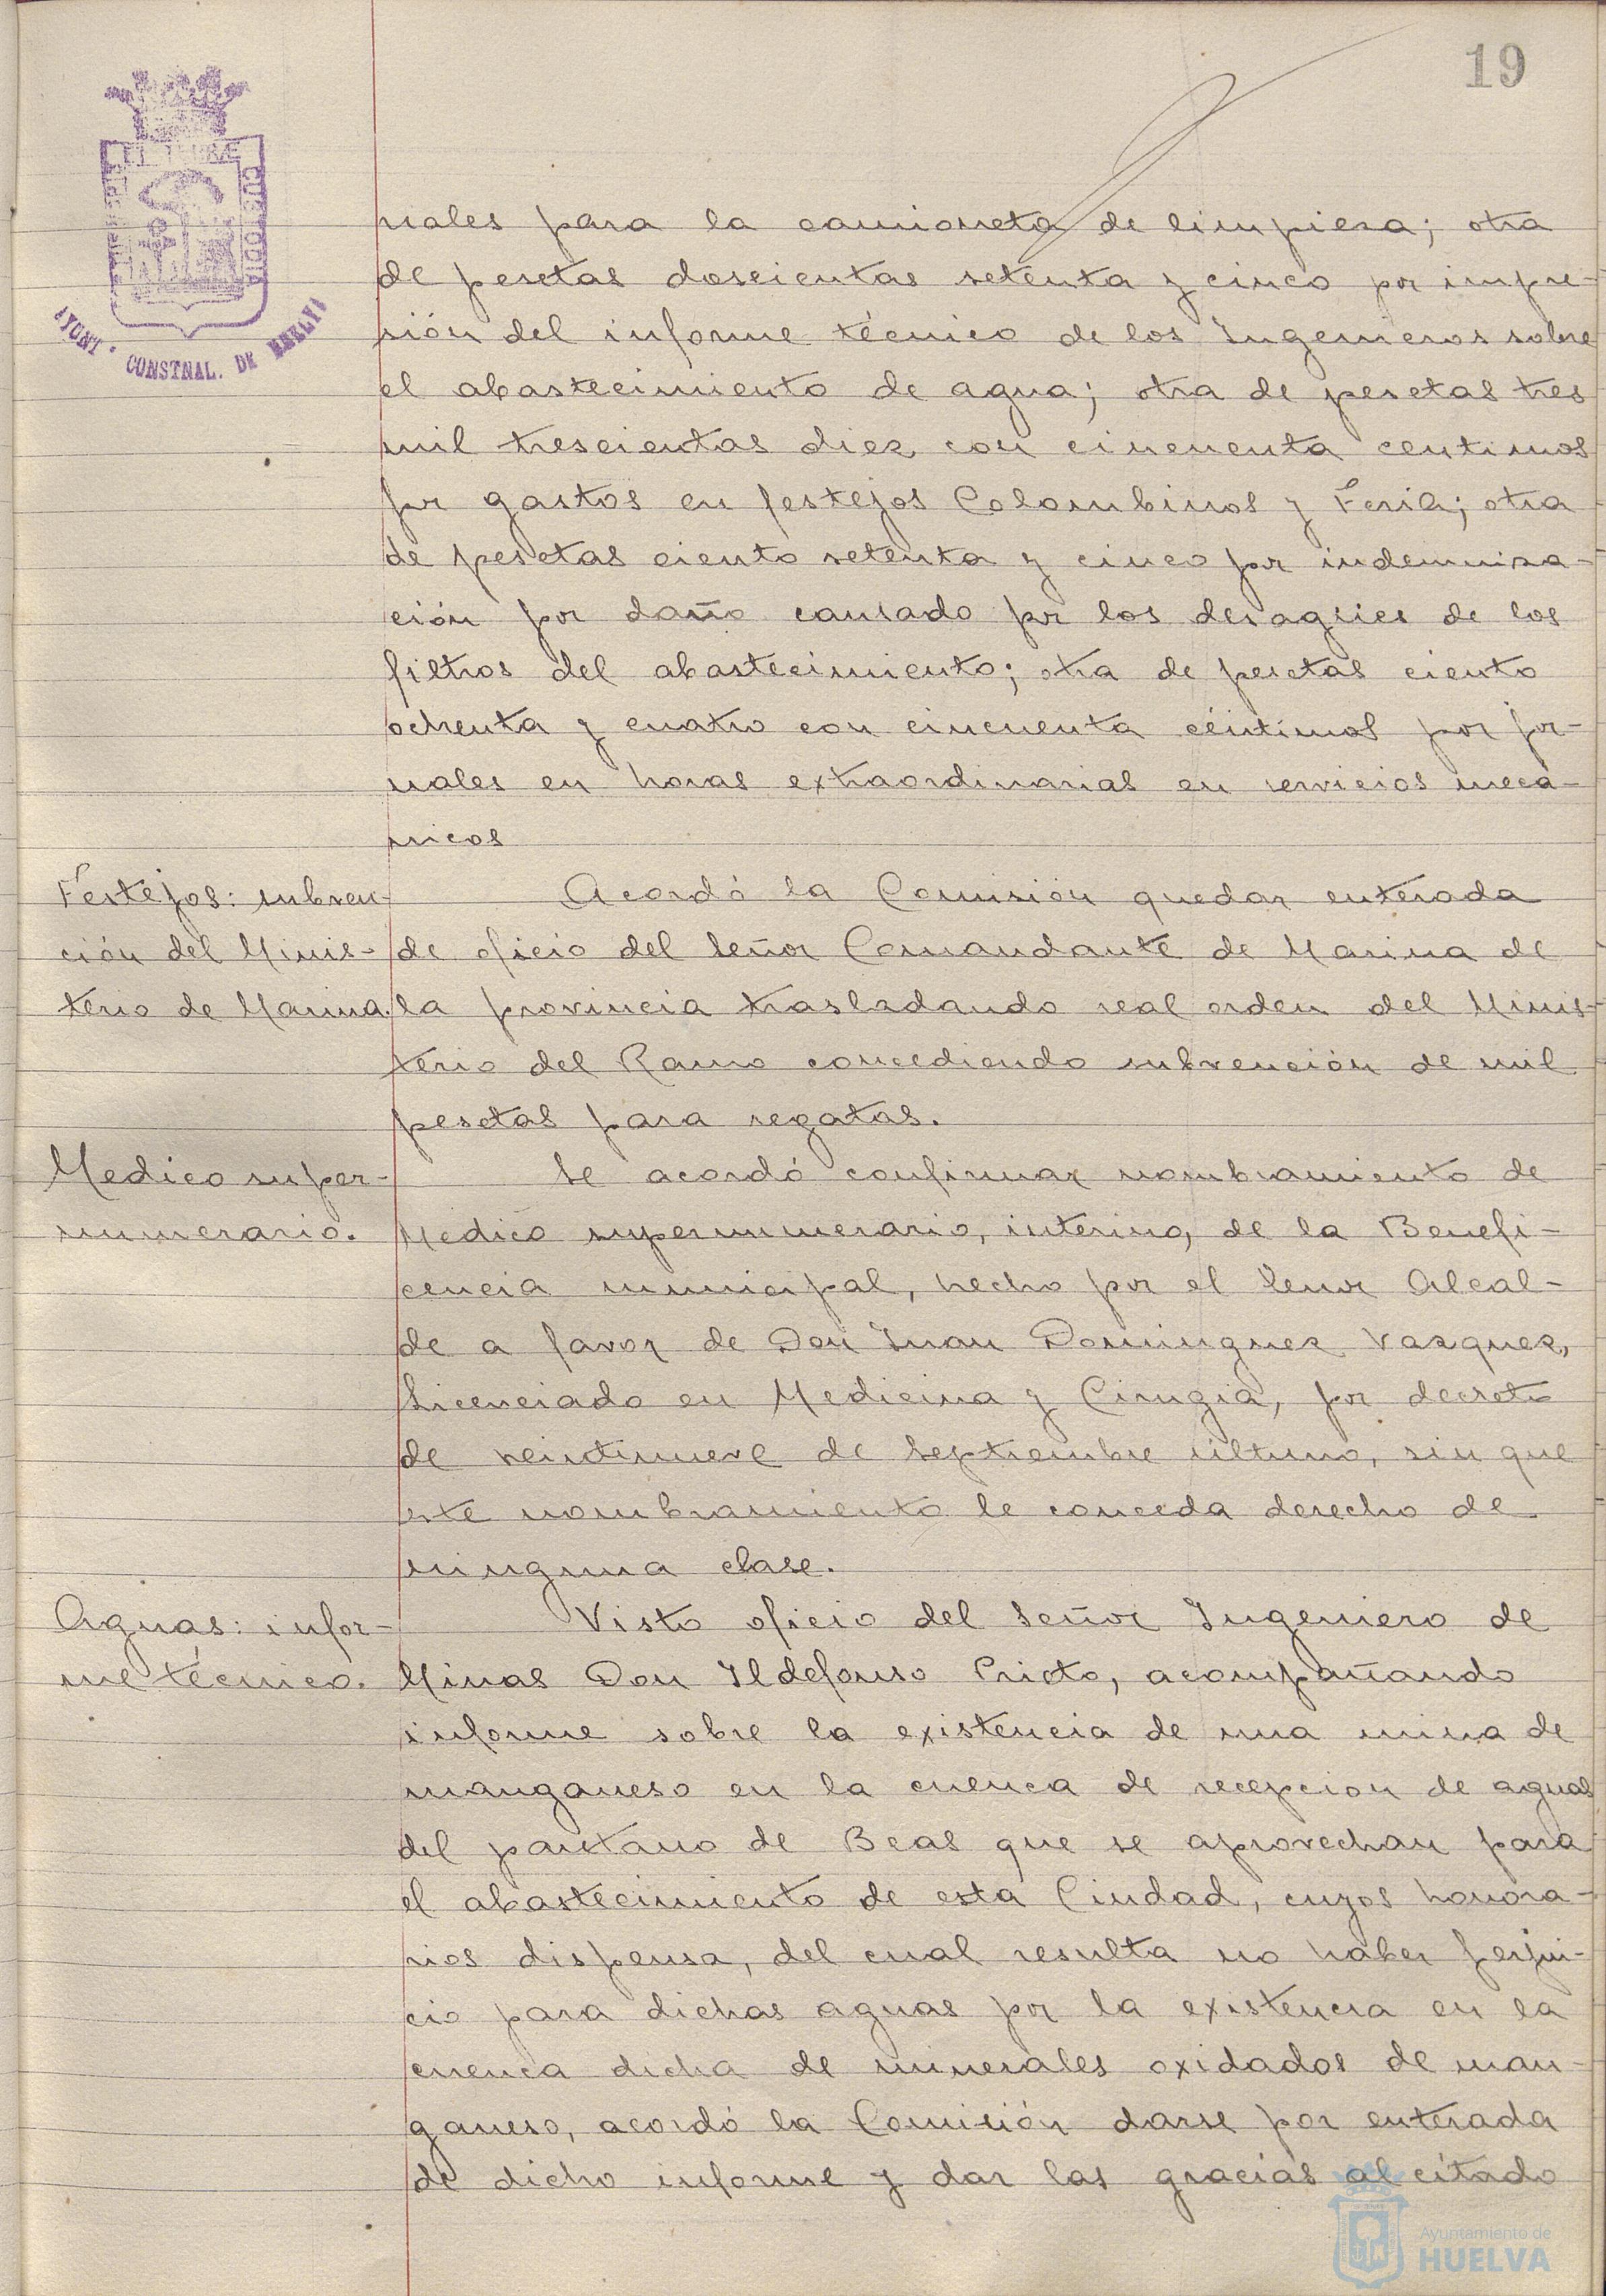 19
AYUNT. CONSTNAL. DE HUELVA
riales para la camioneta de limpieza; otra
de pesetas doscientas setenta y cinco por impre-
sión del informe técnico de los Ingenieros sobre
el abastecimiento de agua; otra de pesetas tres
mil trescientas diez con cincuenta centimos
por gastos en festejos Colombinos y Feria; otra
de pesetas ciento setenta y cinco por indemniza-
ción por daño causado por los desagües de los
filtros del abastecimiento; otra de pesetas ciento
ochenta y cuatro con cincuenta céntimos por jor-
nales en horas extraordinarias en servicios mecá-
nicos
Festejos: subven-
ción del Minis-
terio de Marina.
Acordó la Comisión quedar enterada
de oficio del Señor Comandante de Marina de
la provincia trasladando real orden del Minis-
terio del Ramo concediendo subvención de mil
pesetas para regatas.
Medico super-
numerario.
Se acordó confirmar nombramiento de
Médico supernumerario, interino, de la Benefi-
cencia municipal, hecho por el Señor Alcal-
de a favor de Don Juan Dominguez Vazquez,
Licenciado en Medicina y Cirugia, por decreto
de veintinueve de Septiembre último, sin que
este nombramiento le conceda derecho de
ninguna clase.
Aguas: infor-
me técnico.
Visto oficio del Señor Ingeniero de
Minas Don Ildefonso Prieto, acompañando
informe sobre la existencia de una mina de
manganeso en la cuenca de recepcion de aguas
del pantano de Beas que se aprovechan para
el abastecimiento de esta Ciudad, cuyos honora-
rios dispensa, del cual resulta no haber perjui-
cio para dichas aguas por la existencia en la
cuenca dicha de minerales oxidados de man-
ganeso, acordó la Comisión darse por enterada
de dicho informe y dar las gracias al citado
Ayuntamiento de
HUELVA